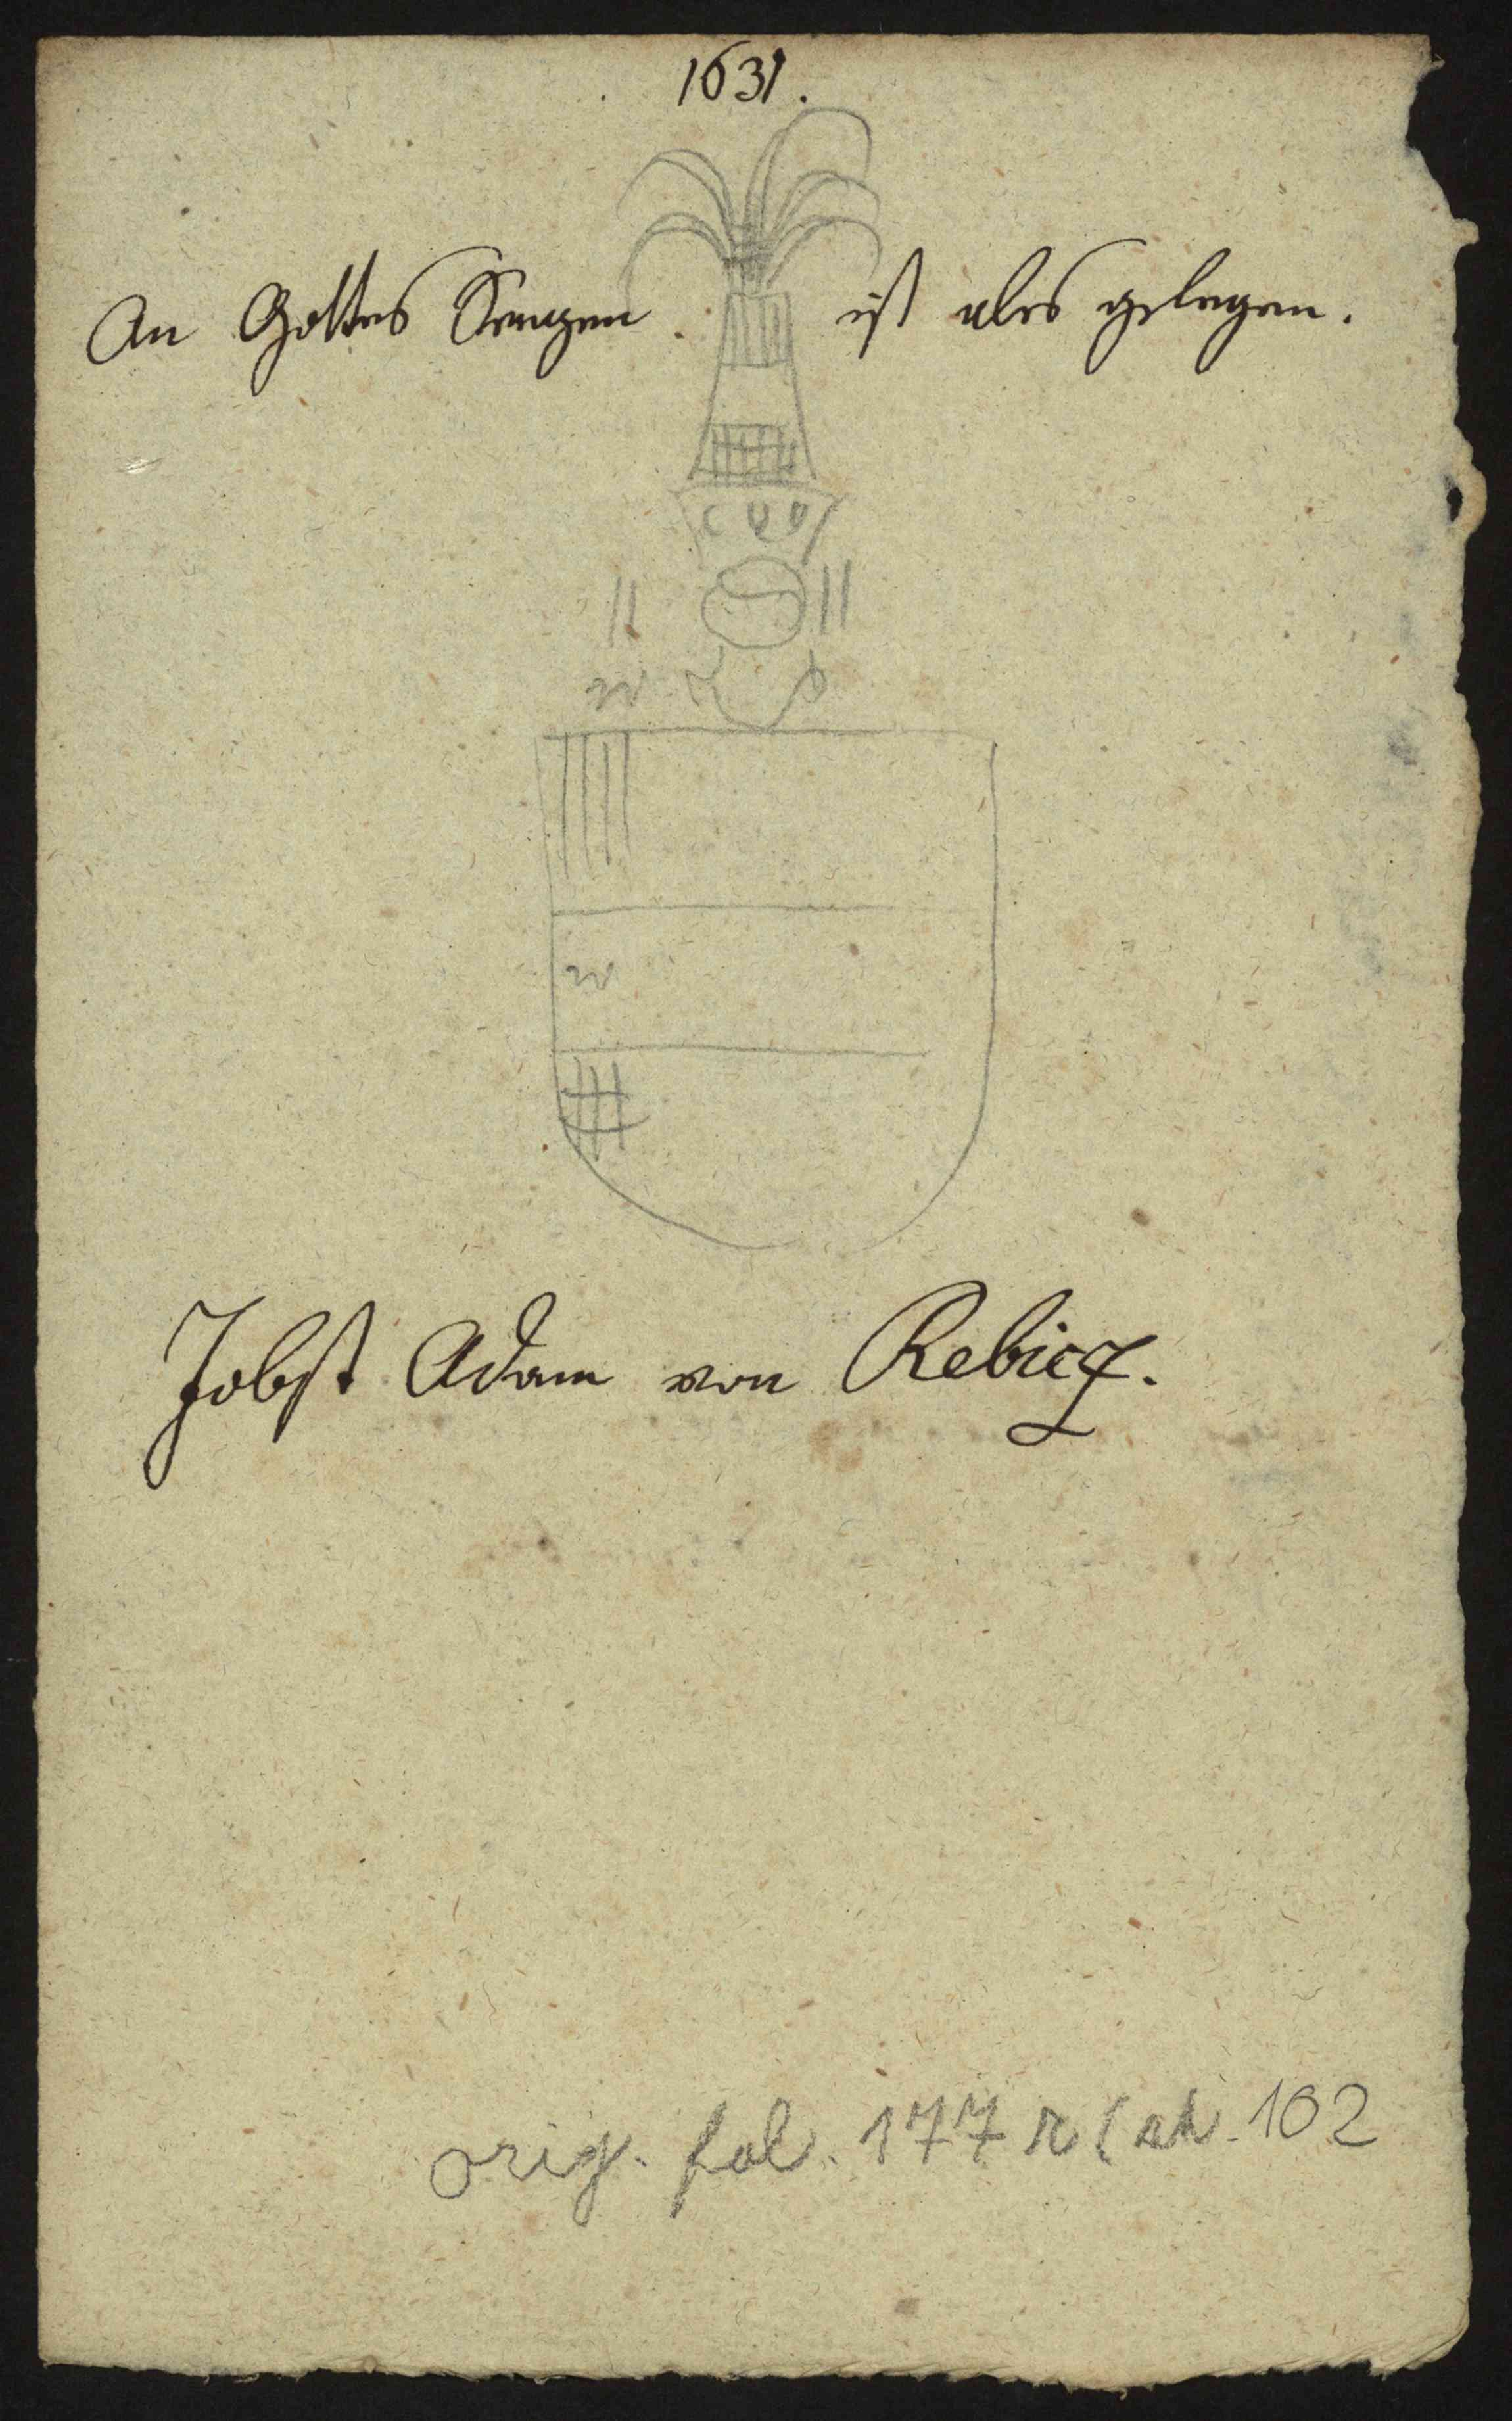 1631.
An Gottes Seegen ist ales gelegen.
w
w
Jobst Adam von Rebicz.
orig. fol. 177 r ( ah. 102